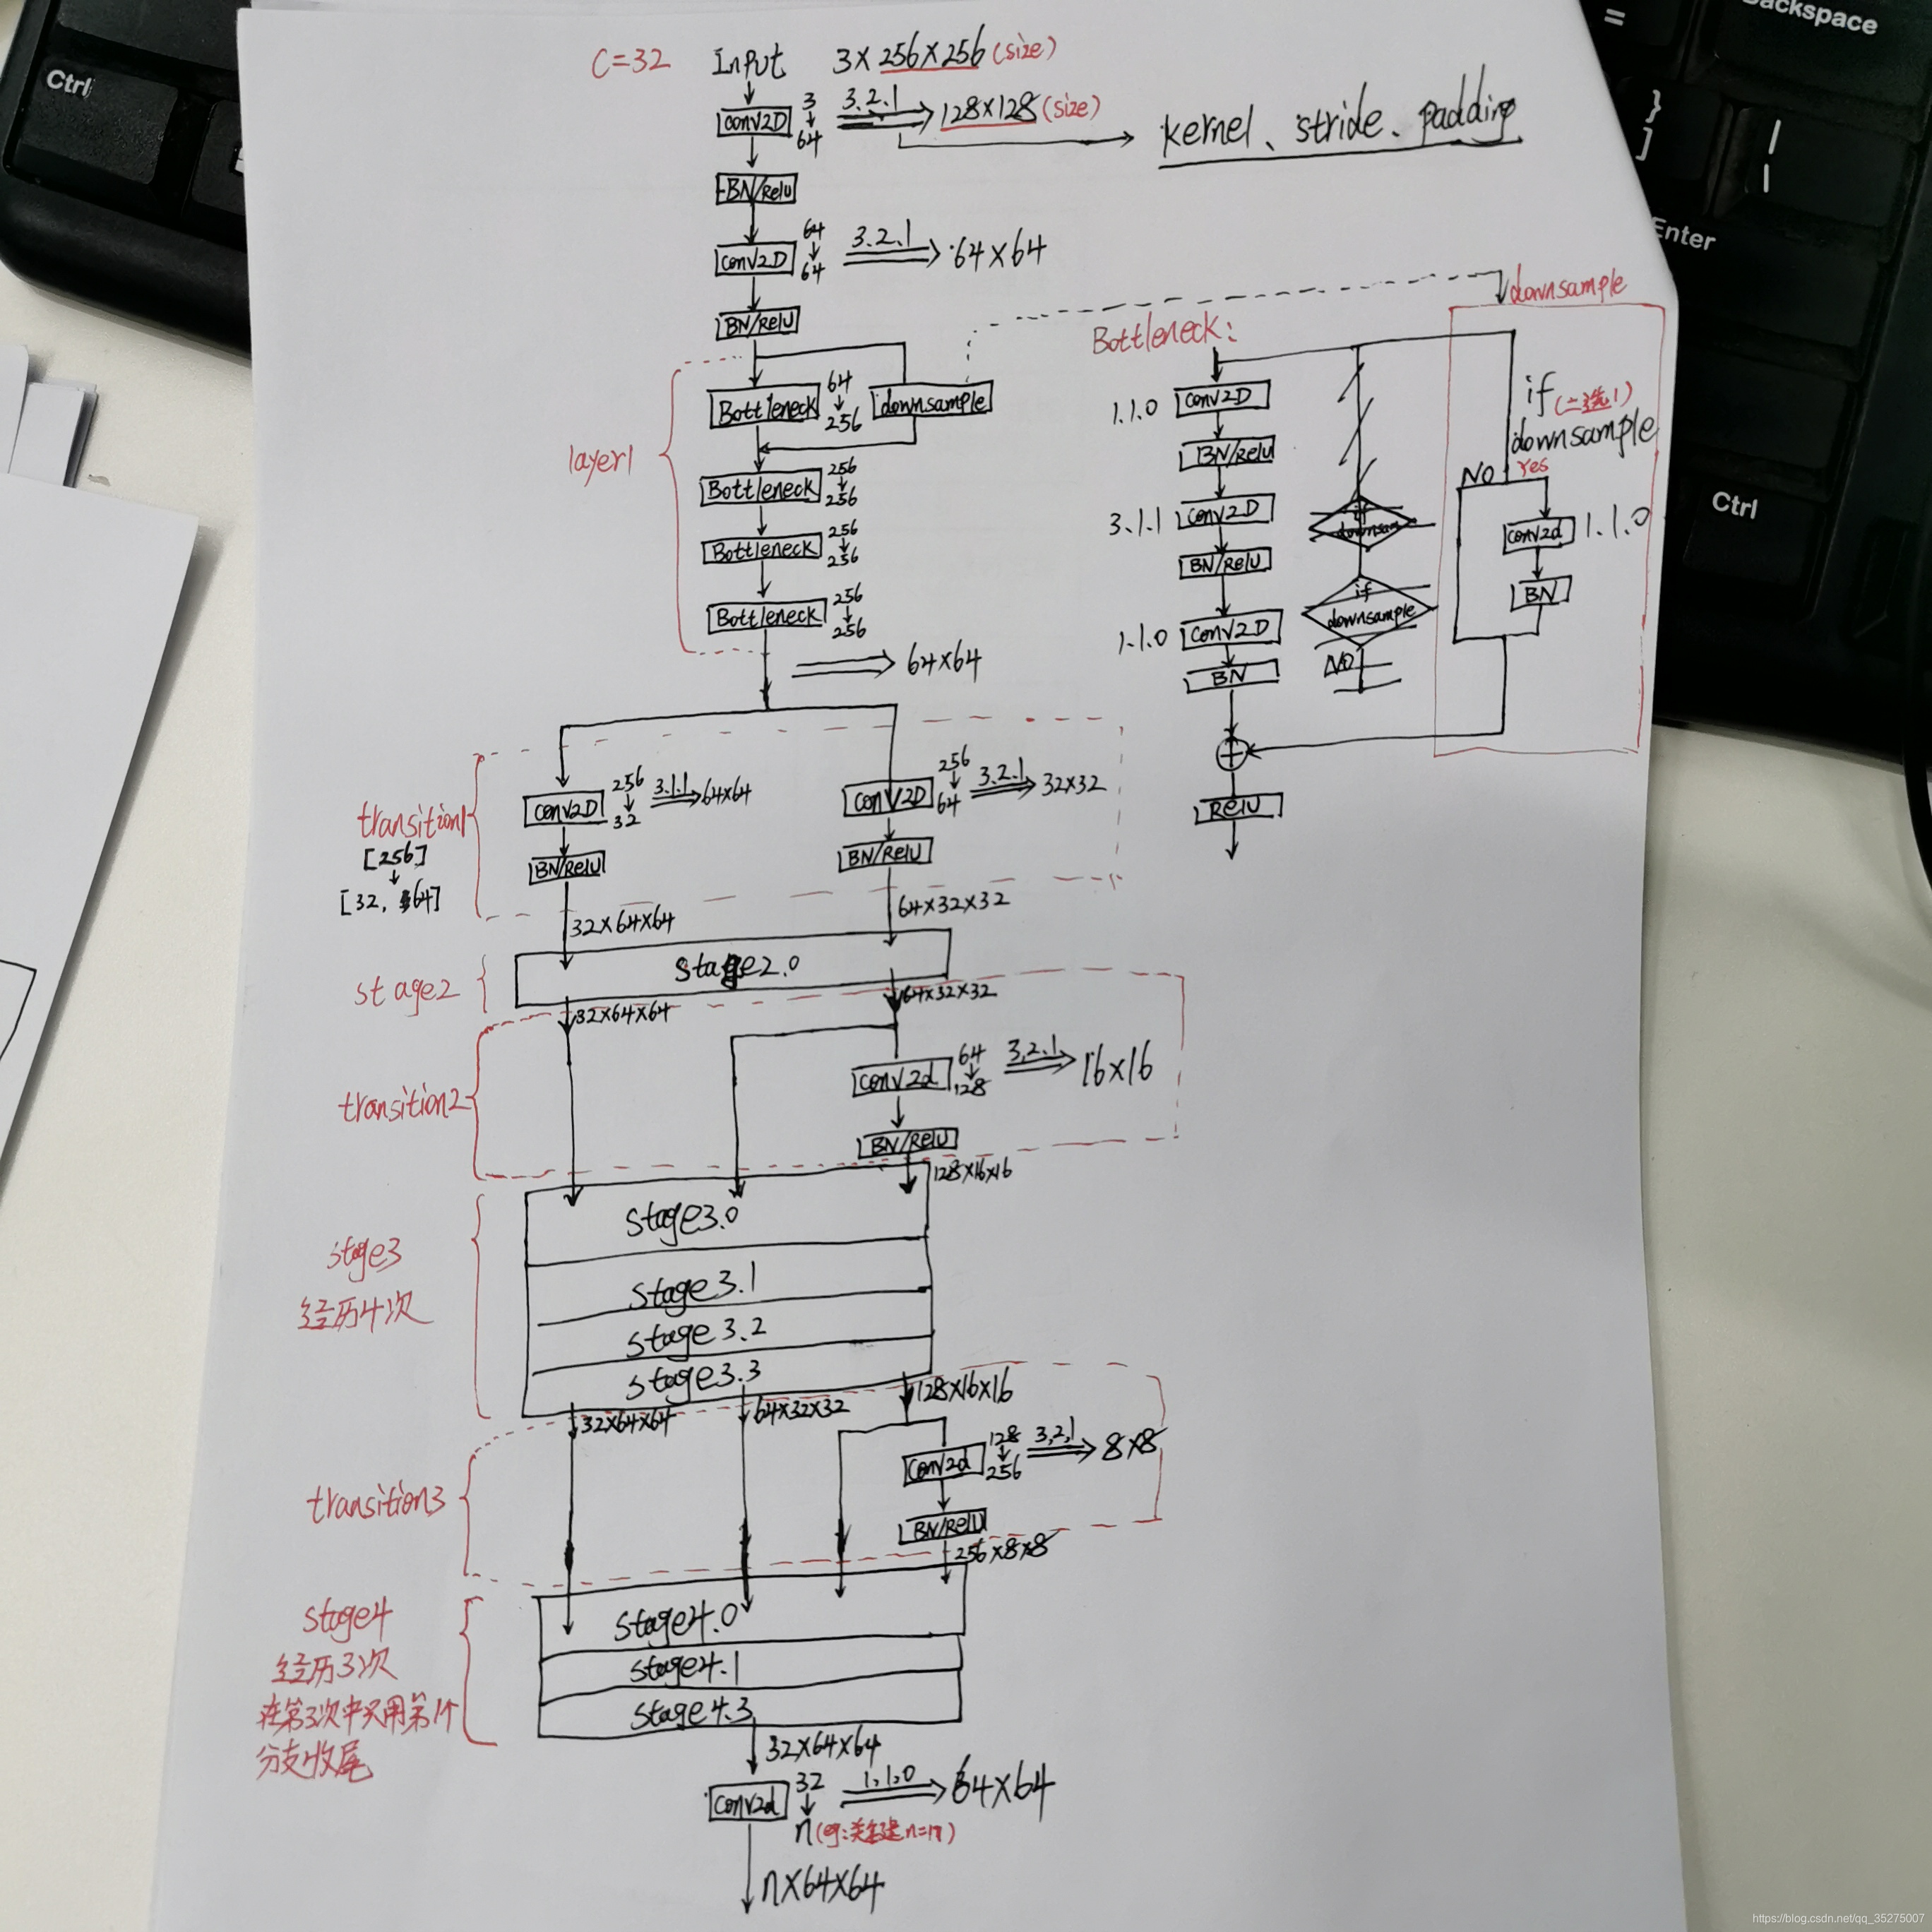 C=32 Input 3×256×256 (size)
Conv2D 3 64 3.2.1 128×128 (size)
kernel、stride、padding
BN/relu
Conv2D 64 64 3.2.1 64×64
BN/relu
layer1
Bottleneck 64 256 downsample
Bottleneck 256 256
Bottleneck 256 256
Bottleneck 256 256
64×64
Bottleneck:
1.1.0 Conv2D
BN/relu
3.1.1 Conv2D
BN/relu
1.1.0 Conv2D
BN
+
Relu
if
downsam
if
downsample
NO
downsample
if (二选1)
downsample
NO Yes
conv2d 1.1.0
BN
transition1
[256]
[32, 64]
Conv2D 256 32 3.1.1 64×64
BN/relu
32×64×64
Conv2D 256 64 3.2.1 32×32
BN/relu
64×32×32
stage2
stage2.0
32×64×64 64×32×32
transition2
Conv2d 64 128 3,2.1 16×16
BN/relu
128×16×16
stage3
经历4次
stage3.0
stage3.1
stage3.2
stage3.3
32×64×64 64×32×32 128×16×16
transition3
Conv2d 128 256 3,2,1 8×8
BN/Relu
256×8×8
stage4
经历3次
在第3次中只用第1个
分支收尾
stage4.0
stage4.1
stage4.3
32×64×64
Conv2d 32 n 1,1,0 64×64
(eg:关键 n=17)
n×64×64
=
Backspace
}
]
|
\
Enter
Ctrl
Ctrl
https://blog.csdn.net/qq_35275007